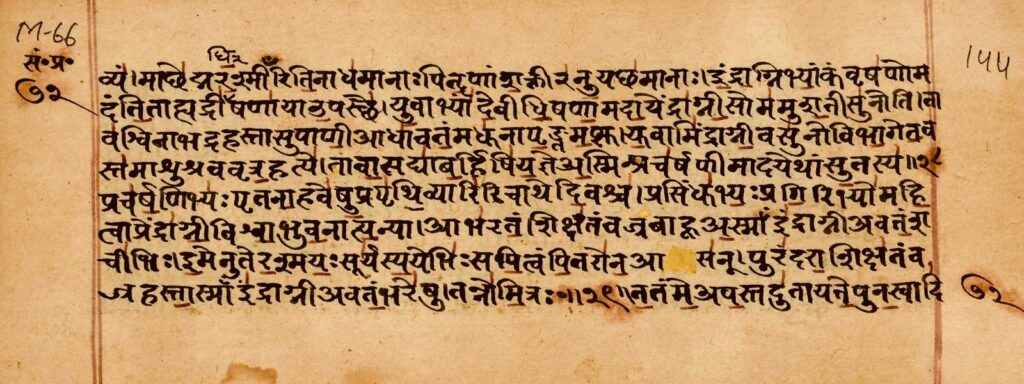 M-66
सं॰प्र॰
७२
144
धि२
व्यं।माछेद्मरश्मीँरितिनाधमानाःपितॄणांशक्तीरनुयछमानाः।इंद्राग्निभ्यांकंवृषणोम
दंतिताह्यद्रीधिषणायाउपस्थे।युवाभ्यांदेवीधिषणामदायेंद्राग्नीसोममुशतीसुनोति।ता
वश्विनाभद्रहस्तासुपाणीआधावतंमधुनापृङ्क्तमप्सु।युवामिंद्राग्नीवसुनोविभागेतव
स्तमाशुश्रववृत्रहत्ये।तावासद्याबर्हिषियज्ञेअस्मिन्प्रचर्षणीमादयेथांसुतस्य॥२८
प्रचर्षणिभ्यःपृतनाहवेषुप्रपृथिव्यारिरिचाथेदिवश्च।प्रसिंधुभ्यःप्रगिरिभ्योमहि
त्वाप्रेंद्राग्नीविश्वाभुवनात्यन्या।आभरतंशिक्षतंवज्रबाहूअस्माँइंद्राग्नीअवतंश
चीभिः।इमेनुतेरश्मयःसूर्यस्ययेभिःसपित्वंपितरोनआ सन्।पुरंदराशिक्षतंव
ज्रहस्तास्माँइंद्राग्नीअवतंभरेषु।तन्नोमित्रः॰॥२९॥ततंमेअपस्तदुतायतेपुनःस्वादि
७२